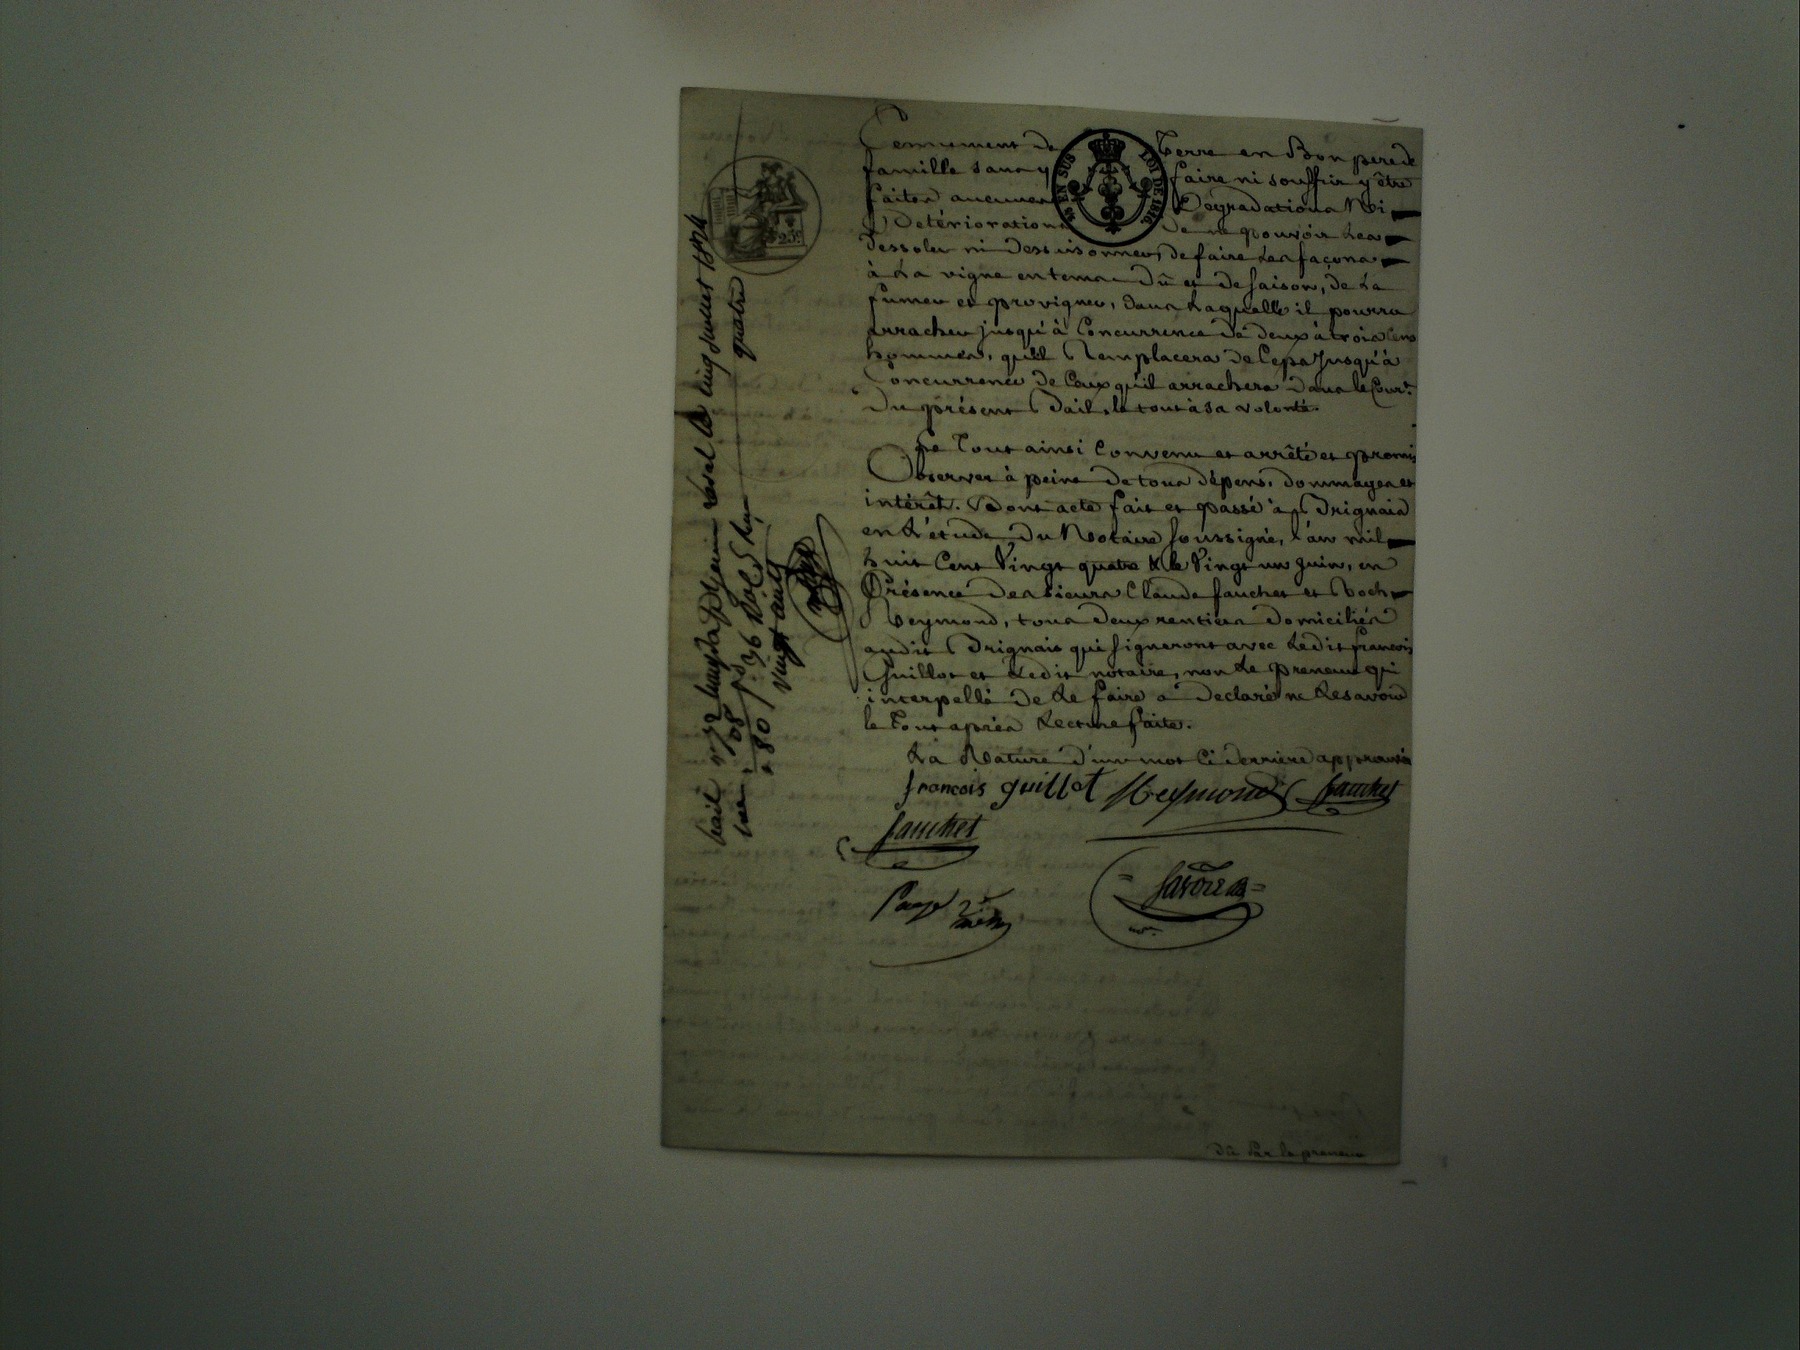 Tennement de Terre en Bon pere de
famille sans y faire ni souffrir y être
faites aucunes Dégradations Ni
Detériorations de ne pouvoir les
dessoler ni dessaisonner, de faire les façons
à la vigne en tems Dû et de saison, de la
fumer et provigner, dans laquelle il pourra
arracher jusqu'à Concurrence de deux à trois Cens
hommées, qu'il Remplacera de Ceps jusqu'à
Concurrence de Ceux qu'il arrachera dans le Cour.t
du présent Bail, le tout à sa volonté.
Le Tout ainsi Convenu et arrêté et promis
Observer à peine de tous dépens, dommages et
intérêt. Dont acte fait et passé à Brignais
en L'étude du Notaire soussigné, l'an mil
huit Cent Vingt quatre & le Vingt un juin, en
Présence des sieurs Claude fauchet et Roch
Reymond, tous deux rentiers domiciliés
audit Brignais qui signeront avec ledit francois
Guillot et ledit notaire, non le preneur qui
interpellé de le faire a declaré ne le savoir
le Tout après Lecture faite.
La Rature d'un mot Ci derriere approuvée
francois guillot Reymond fauchet
fauchet
EN SUS LOI DE 1816
25c
quatre
vingt
dû par le preneur